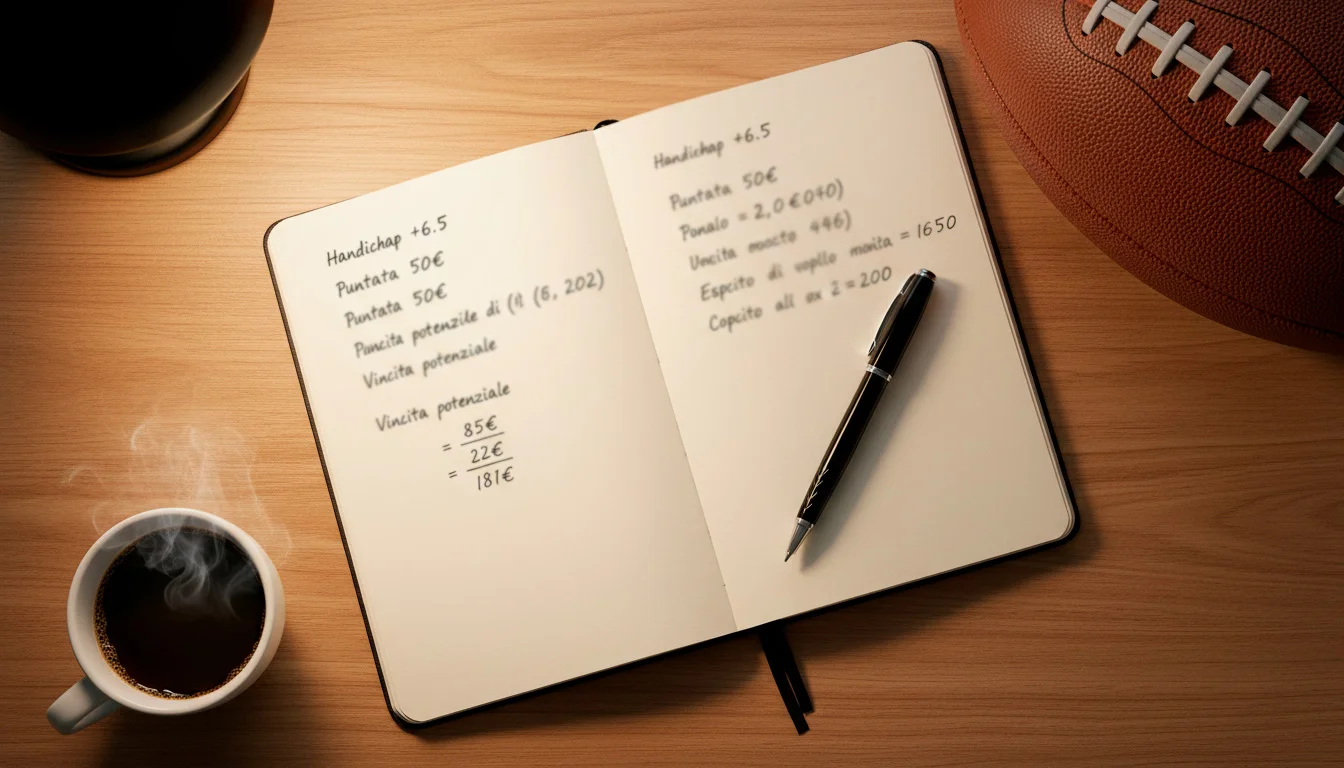 Handichap +6.5
Puntata 50€
Puntata 50€
Pancita potenzile di (9 (6, 202)
Vincita potenziale
Vincita potenziale
= 85€
22€
= 181€
Handichap +6.5
Puntata 50€
Ponalo = 2,0 € 040)
Uncita 446)
Espcito di = 1650
Copcito all ex 2 = 200